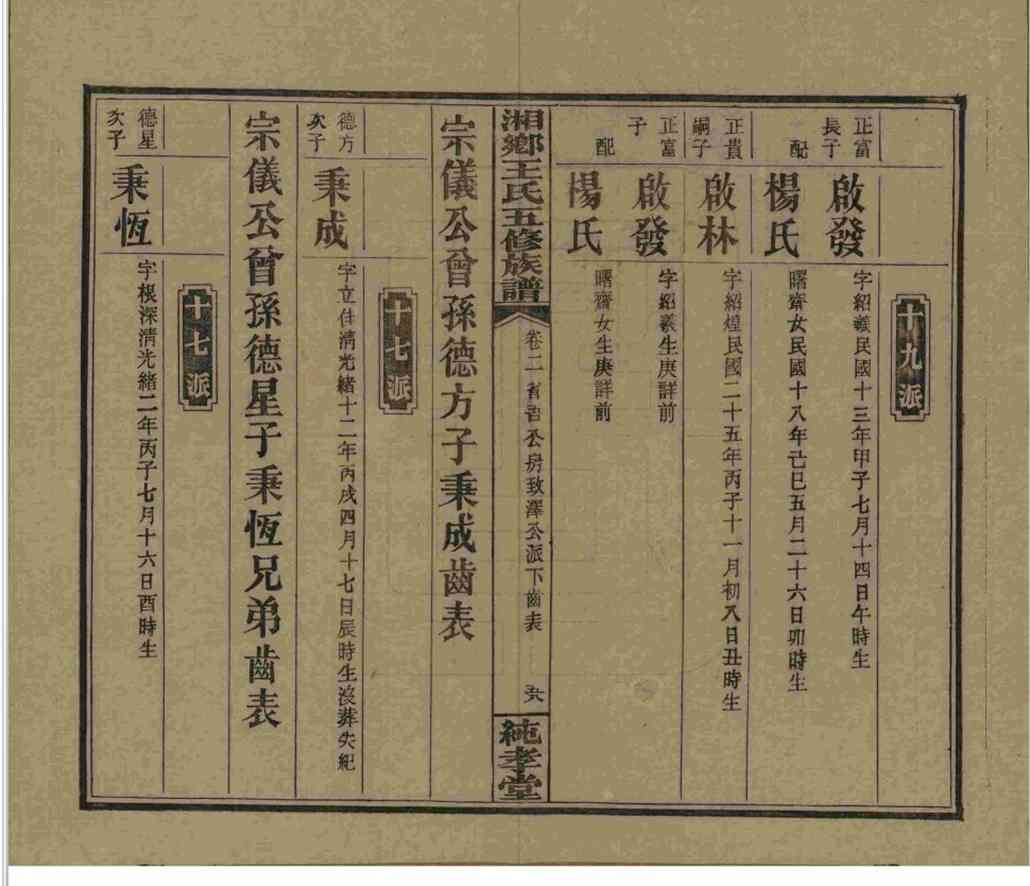 十九派
正富長子
啟發
字紹羲民國十三年甲子七月十四日午時生
配
楊氏
曙齋女民國十八年己巳五月二十六日卯時生
正貴嗣子
啟林
字紹煌民國二十五年丙子十一月初八日丑時生
正富子
啟發
字紹羲生庚詳前
配
楊氏
曙齋女生庚詳前
湘鄉王氏五修族譜
卷二
公房致澤公派下齒表
純孝堂
宗儀公曾孫德方子秉成齒表
十七派
德方次子
秉成
字立仕清光緒十二年丙戌四月十七日辰時生沒葬失紀
宗儀公曾孫德星子秉恆兄弟齒表
十七派
德星次子
秉恆
字根深清光緒二年丙子七月十六日酉時生